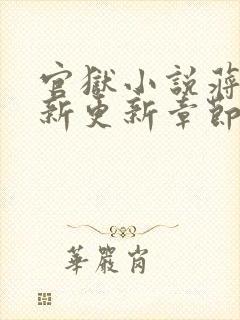 官獄小説蔣
新更新章節
華嚴肖